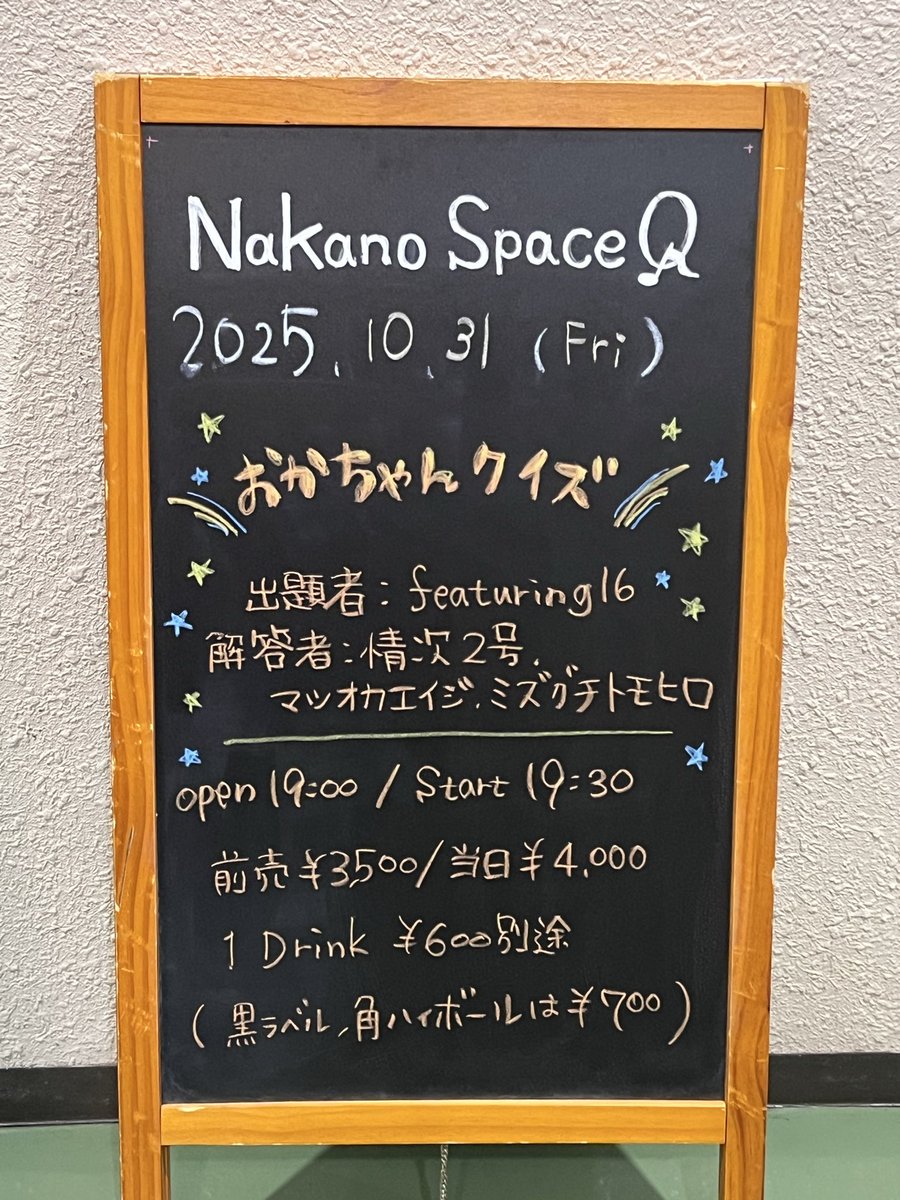 Nakano Space Q
2025.10.31 (Fri)
おかちゃんクイズ
出題者:featuring16
解答者:情次2号.
マツオカエイジ.ミズグチトモヒロ
open 19:00 / Start 19:30
前売¥3,500/当日¥4,000
1 Drink ¥600別途
(黒ラベル,角ハイボールは¥700)